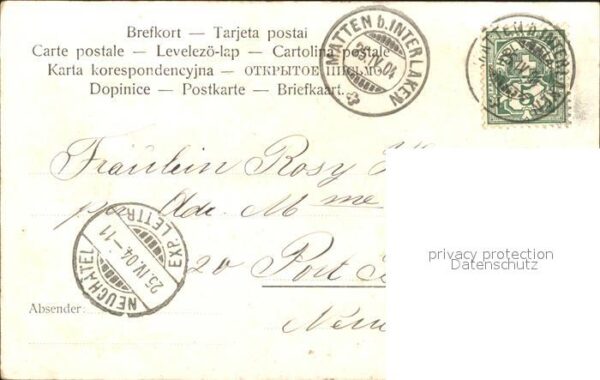 Brefkort — Tarjeta postal
Carte postale — Levelezö-lap — Cartolina postale
Karta korespondencyjna — ОТКРЫТОЕ ПИСЬМО
Dopinice — Postkarte — Briefkaart.
MATTEN b. INTERLAKEN
25.IV.04
Fräulein Rosy
Mme
20 Port
NEUCHATEL
25.IV.04-11
EXP. LETTR.
Absender:
privacy protection
Datenschutz